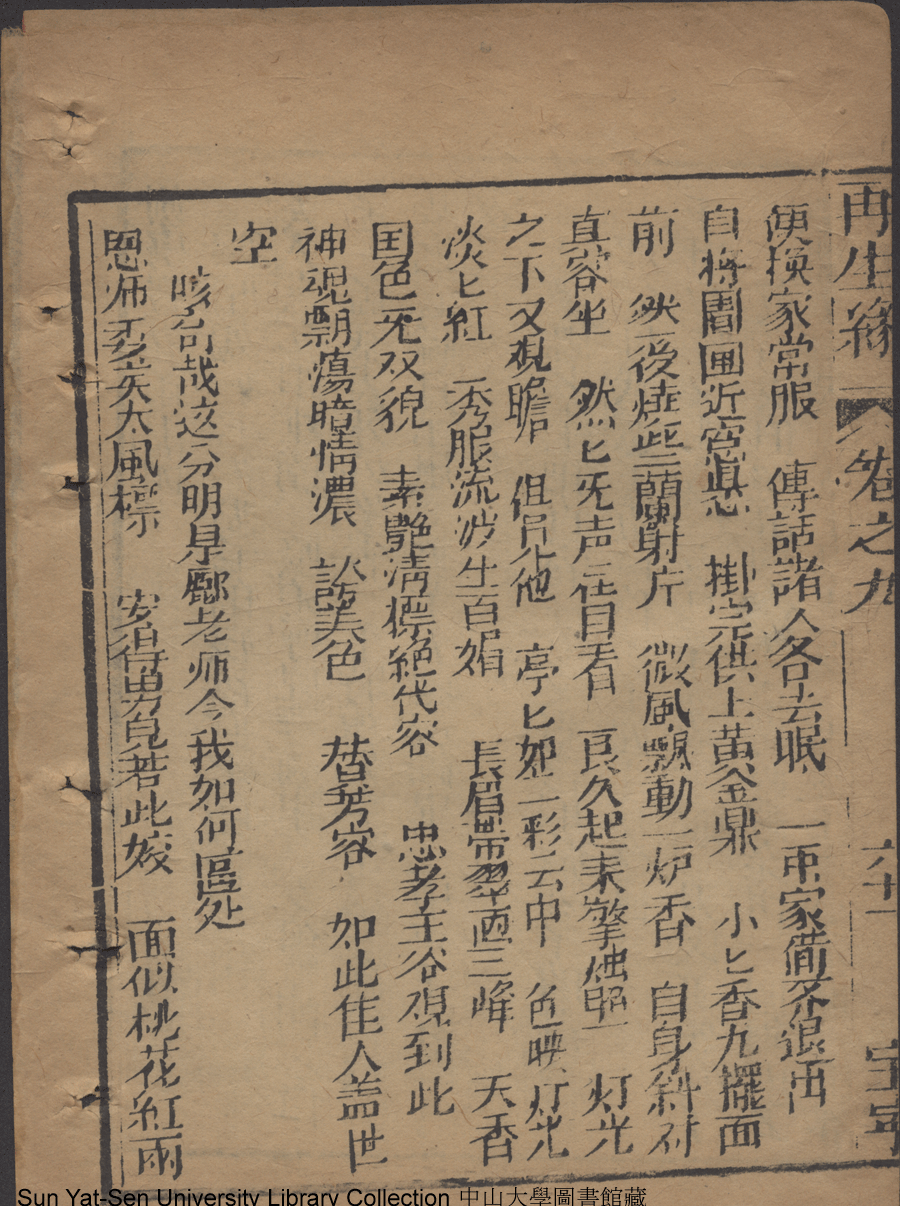 再生緣 卷之九 六十一
便換家常服 傳話諸人各去眠 一衆家僮多退出
自將圖画近窓懸 掛完供上黄金鼎 小匕香九擺面
前 然後燒些蘭射片 微風飄動一炉香 自身斜对
直容坐 然匕旡声在目看 良久起来擎烛照 灯光
之下又观瞻 但見他 亭匕如一彩云中 色映灯光
淡匕紅 秀服流波生百媚 長眉帶翠画三峰 天香
国色旡双貌 素艷清標絕代容 忠孝王爷观到此
神魂飄蕩暗情濃 誇美色 替芳容 如此佳人盖世
空
咳奇哉这分明是酈老师今我如何區处
恩师太風標 安得男兒若此姣 面似桃花紅雨
Sun Yat-Sen University Library Collection 中山大學圖書館藏